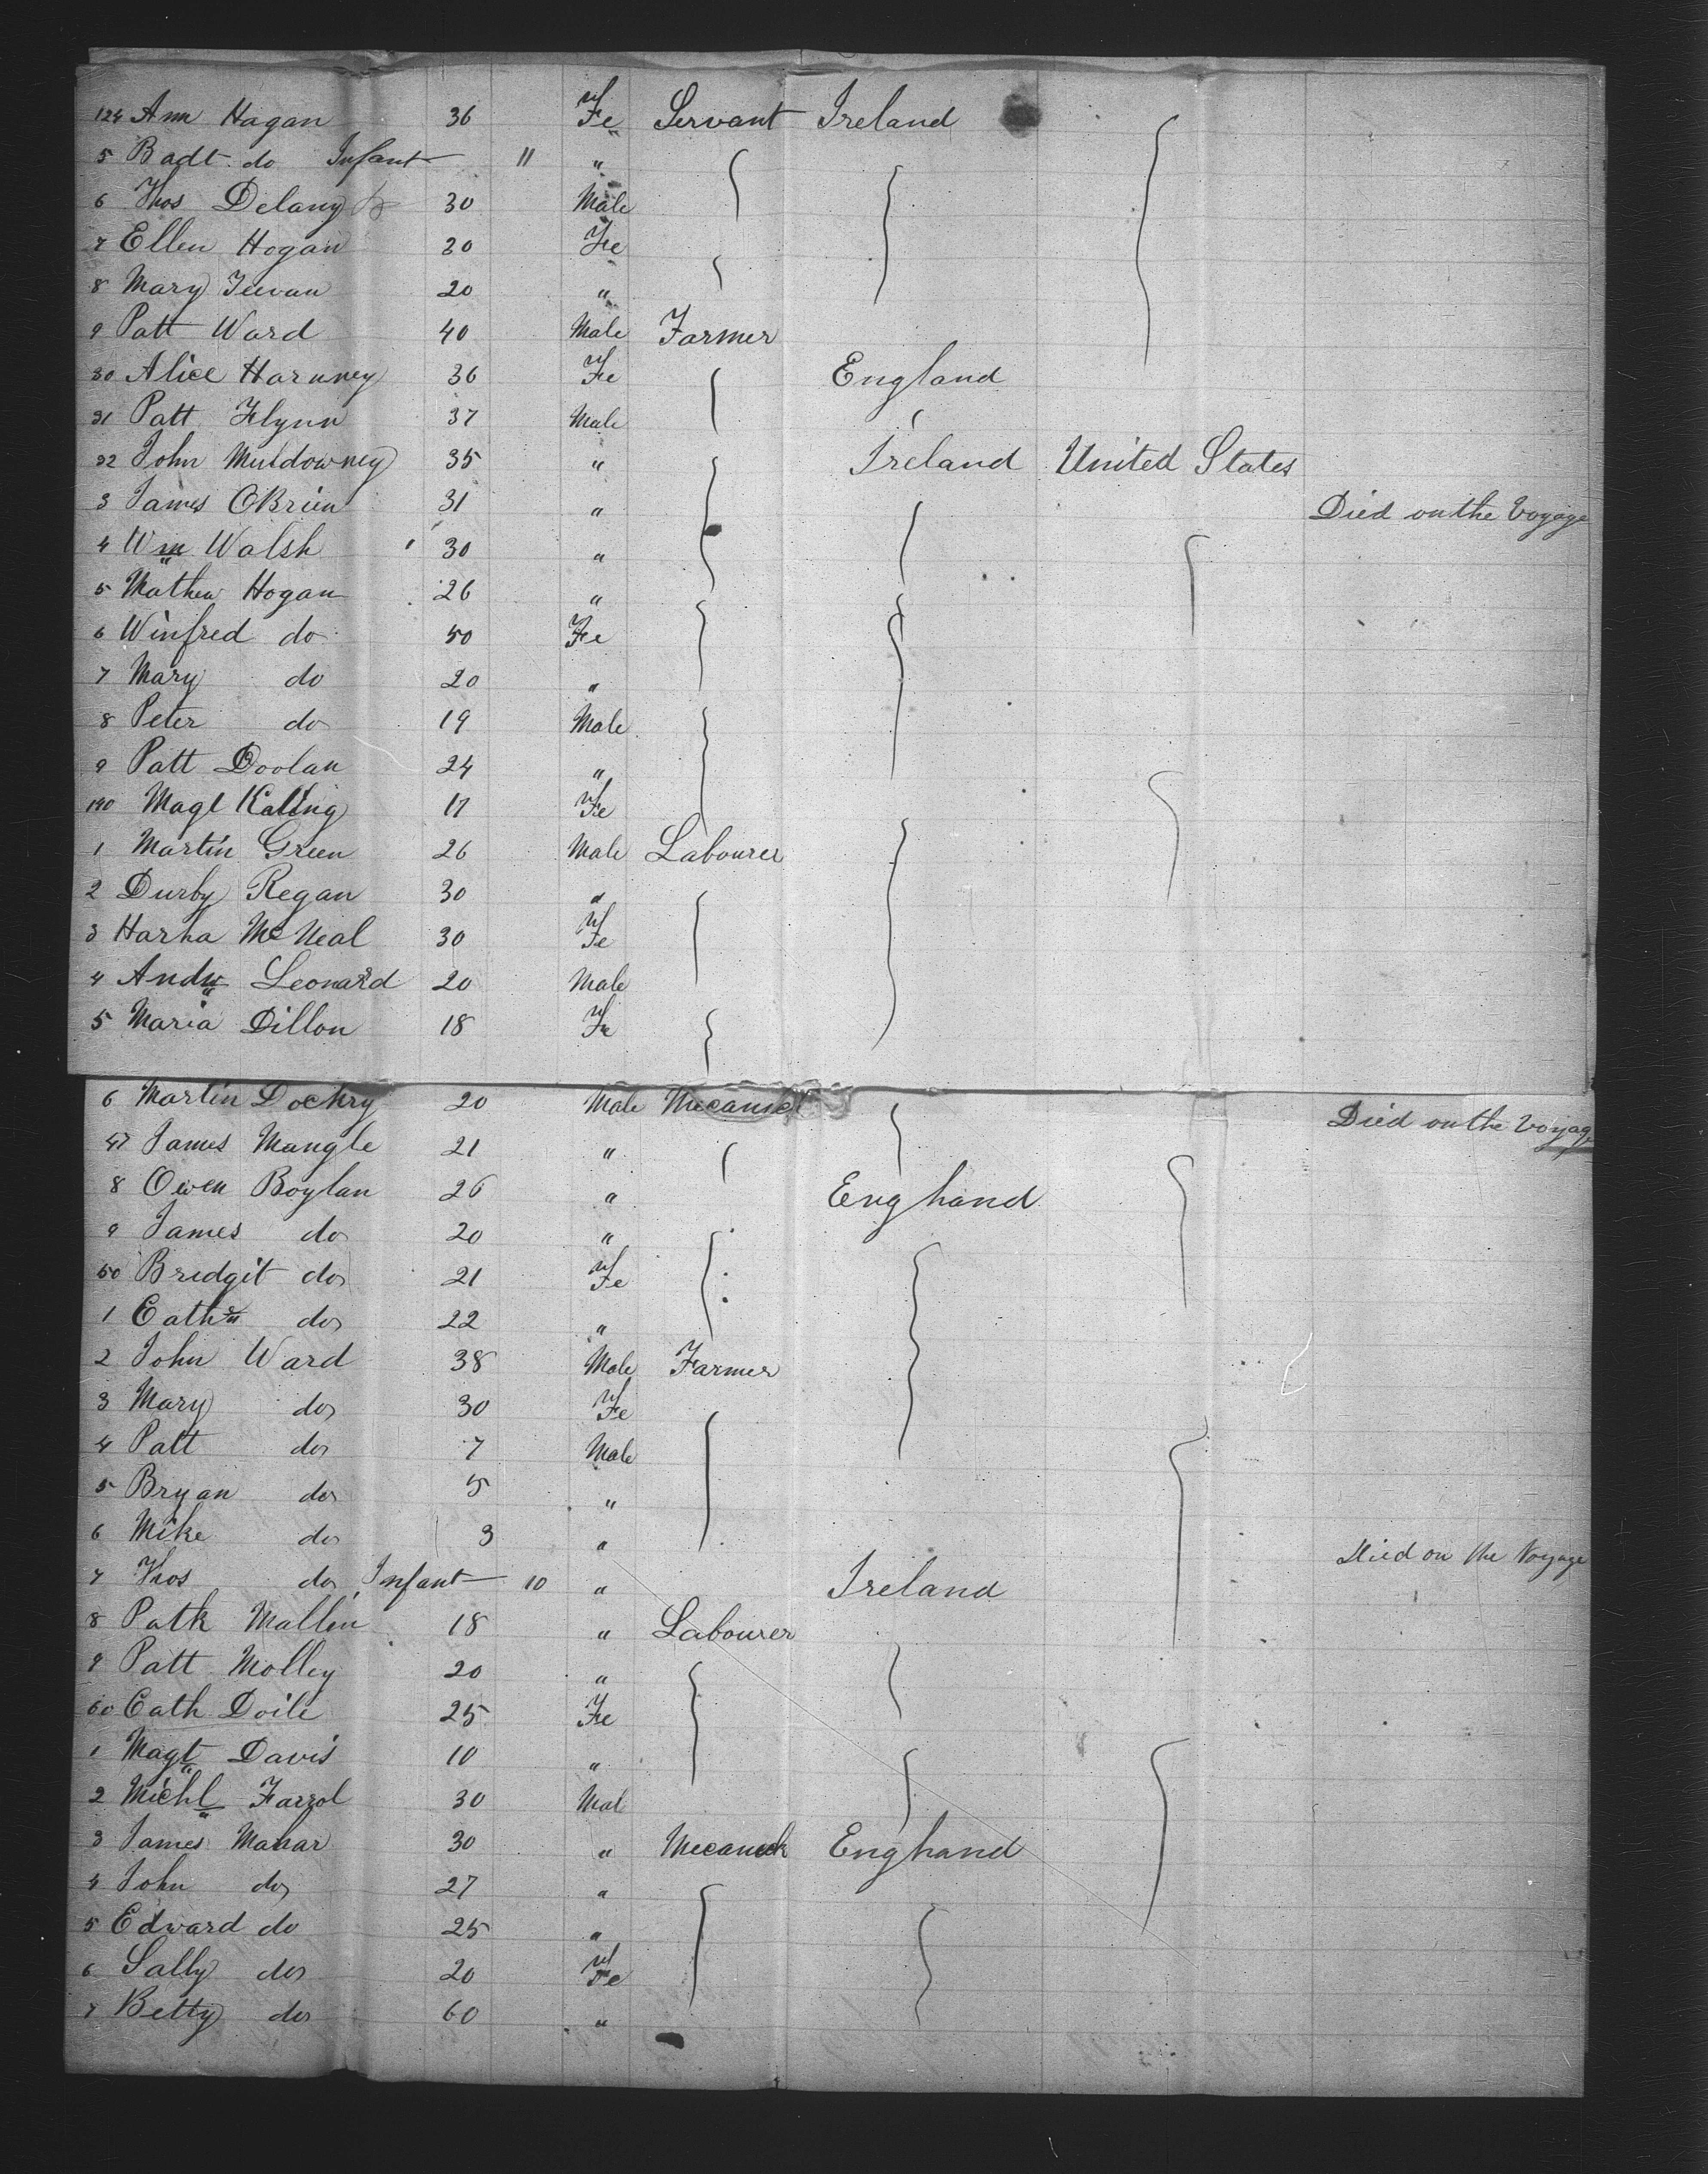 124 Ann Hagan 36 Fe Servant Ireland
5 Badt do Infant 11 "
6 Thos Delany 30 Male
7 Ellen Hogan 20 Fe
8 Mary 20 "
9 Patt Ward 40 Male Farmer
30 Alice Harnney 36 Fe England
31 Patt Flynn 37 Male
32 John Muldowney 35 " Ireland United States
3 James OBrien 31 " Died on the Voyage
4 Wm Walsh 30 "
5 Mathew Hogan 26 "
6 Winfred do 50 Fe
7 Mary do 20 "
8 Peter do 19 Male
9 Patt Doolan 24 "
140 Magt Kating 17 Fe
1 Martin Green 26 Male Labourer
2 Durby Regan 30 "
3 Harha Mc Neal 30 Fe
4 Andw Leonard 20 Male
5 Maria Dillon 18 Fe
6 Martin Dockry 20 Male Mecanick Died on the Voyage
47 James Mangle 21 "
8 Owen Boylan 26 " Enghand
9 James do 20 "
50 Bridgit do 21 Fe
1 Cathn do 22 "
2 John Ward 38 Male Farmer
3 Mary do 30 Fe
4 Patt do 7 Male
5 Bryan do 5 "
6 Mike do 3 "
7 Thos do Infant 10 " Ireland Died on the Voyage
8 Patk Mallin 18 " Labourer
9 Patt Molley 20 "
60 Cath Doile 25 Fe
1 Magt Davis 10 "
2 Michl Farrol 30 Mal
3 James Mahar 30 " Mecanick Enghand
4 John do 27 "
5 Edward do 25 "
6 Sally do 20 Fe
7 Betty do 60 "